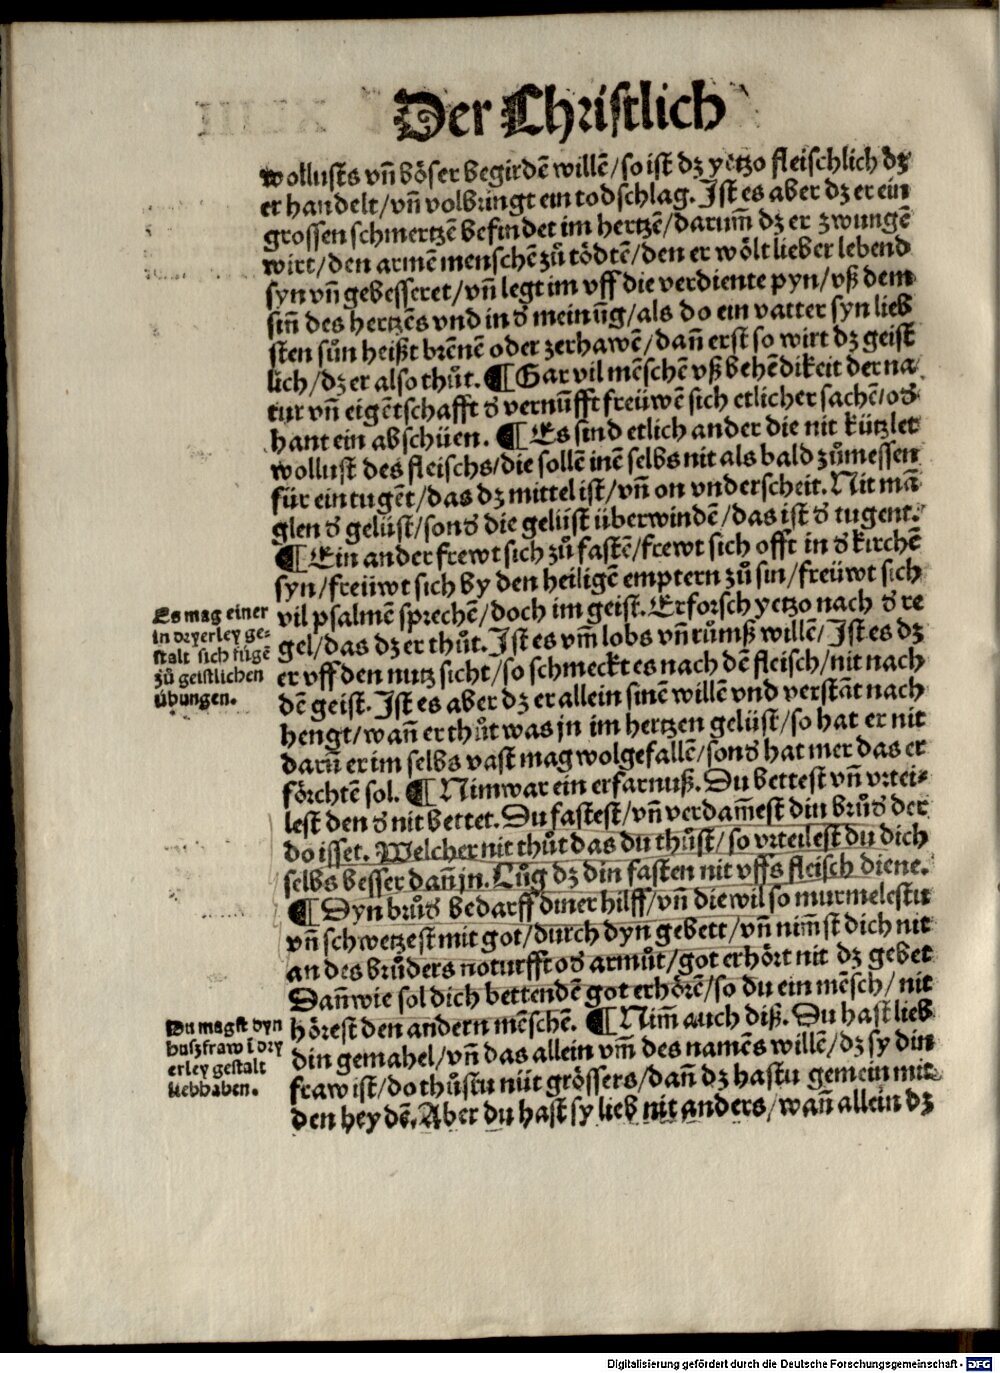 Der Christlich
wollusts vñ böser begirdē willē/so ist dz yetzo fleischlich dz
er handelt/vñ volbringt ein todschlag. Ist es aber dz er ein
grossen schmertzē befindet im hertzē/darum̄ dz er zwungē
wirt/den armē menschē zů tödtē/den er wölt lieber lebend
syn vñ gebesseret/vñ legt im vff die verdiente pyn/vß dem
sin̄ des hertzēs vnd in d' meinūg/als do ein vatter syn lieb
sten sůn heißt brēnē oder zerhawē/dañ erst so wirt dz geist
lich/dz er also thůt. ¶ Gar vil mēschē vß behēdikeit der na
tur vñ eigētschafft d' vernūfft freüwē sich etlicher sachē/od'
hant ein abschüen. ¶ Es sind etlich ander die nit kützlet
wollust des fleischs/die sollē inē selbs nit als bald zůmessen
für ein tugēt/das dz mittel ist/vñ on vnderscheit. Nit mā
glen d' gelüst/sond' die gelüst überwindē/das ist d' tugent.
¶ Ein ander frewt sich zů fastē/frewt sich offt in d' kirchē
syn/freüwt sich by den heiligē emptern zů sin/freüwt sich
vil psalmē sprechē/doch im geist. Erforsch yetzo nach d' re
gel/das dz er thůt. Ist es vm̄ lobs vñ růmß willē/Ist es dz
er vff den nutz sicht/so schmeckt es nach dē fleisch/nit nach
dē geist. Ist es aber dz er allein sinē willē vnd verstāt nach
hengt/wañ er thůt was jn im hertzen gelüst/so hat er nit
darū er im selbs vast mag wolgefallē/sond' hat mer das er
förchtē sol. ¶ Nim war ein erfarnuß. Du bettest vñ vrtei=
lest den d' nit bettet. Du fastest/vñ verdam̄est din brůd' der
do isset. Welcher nit thůt das du thůst/so vrteilest du dich
selbs besser dañ jn. Lůg dz din fasten nit vffs fleisch diene.
¶ Dyn brůd' bedarff diner hilff/vñ die wil so murmelestu
vñ schwetzest mit got/durch dyn gebett/vñ nim̄st dich nit
an des brůders noturfft od' armůt/got erhört nit dz gebet
Dañ wie sol dich bettendē got erhörē/so du ein mēsch/nit
hörest den andern mēschē. ¶ Nim̄ auch diß. Du hast lieb
din gemahel/vñ das allein vm̄ des namēs willē/dz sy din
fraw ist/do thůstu nüt grössers/dañ dz hastu gemein mit
den heydē. Aber du hast sy lieb nit anders/wañ allein dz
Es mag einer
in dryerley ge=
stalt sich fügē
zů geistlichen
übungen.
Du magst dyn
huszfraw ī dry
erley gestalt
liebhaben.
Digitalisierung gefördert durch die Deutsche Forschungsgemeinschaft - DFG